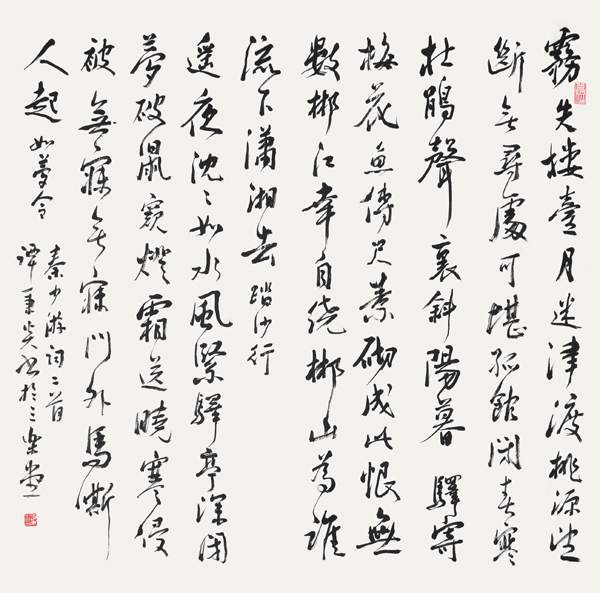 霧失樓臺月迷津渡桃源望
斷無尋處可堪孤館閉春寒
杜鵑聲裏斜陽暮 驛寄
梅花魚傳尺素砌成此恨無
數郴江幸自繞郴山為誰
流下瀟湘去 踏沙行
遙夜沈〻如水風緊驛亭深閉
夢破鼠窺燈霜送曉寒侵
被無寐無寐門外馬嘶
人起 如夢令
秦少游詞二首
譚秉炎書於三樂堂